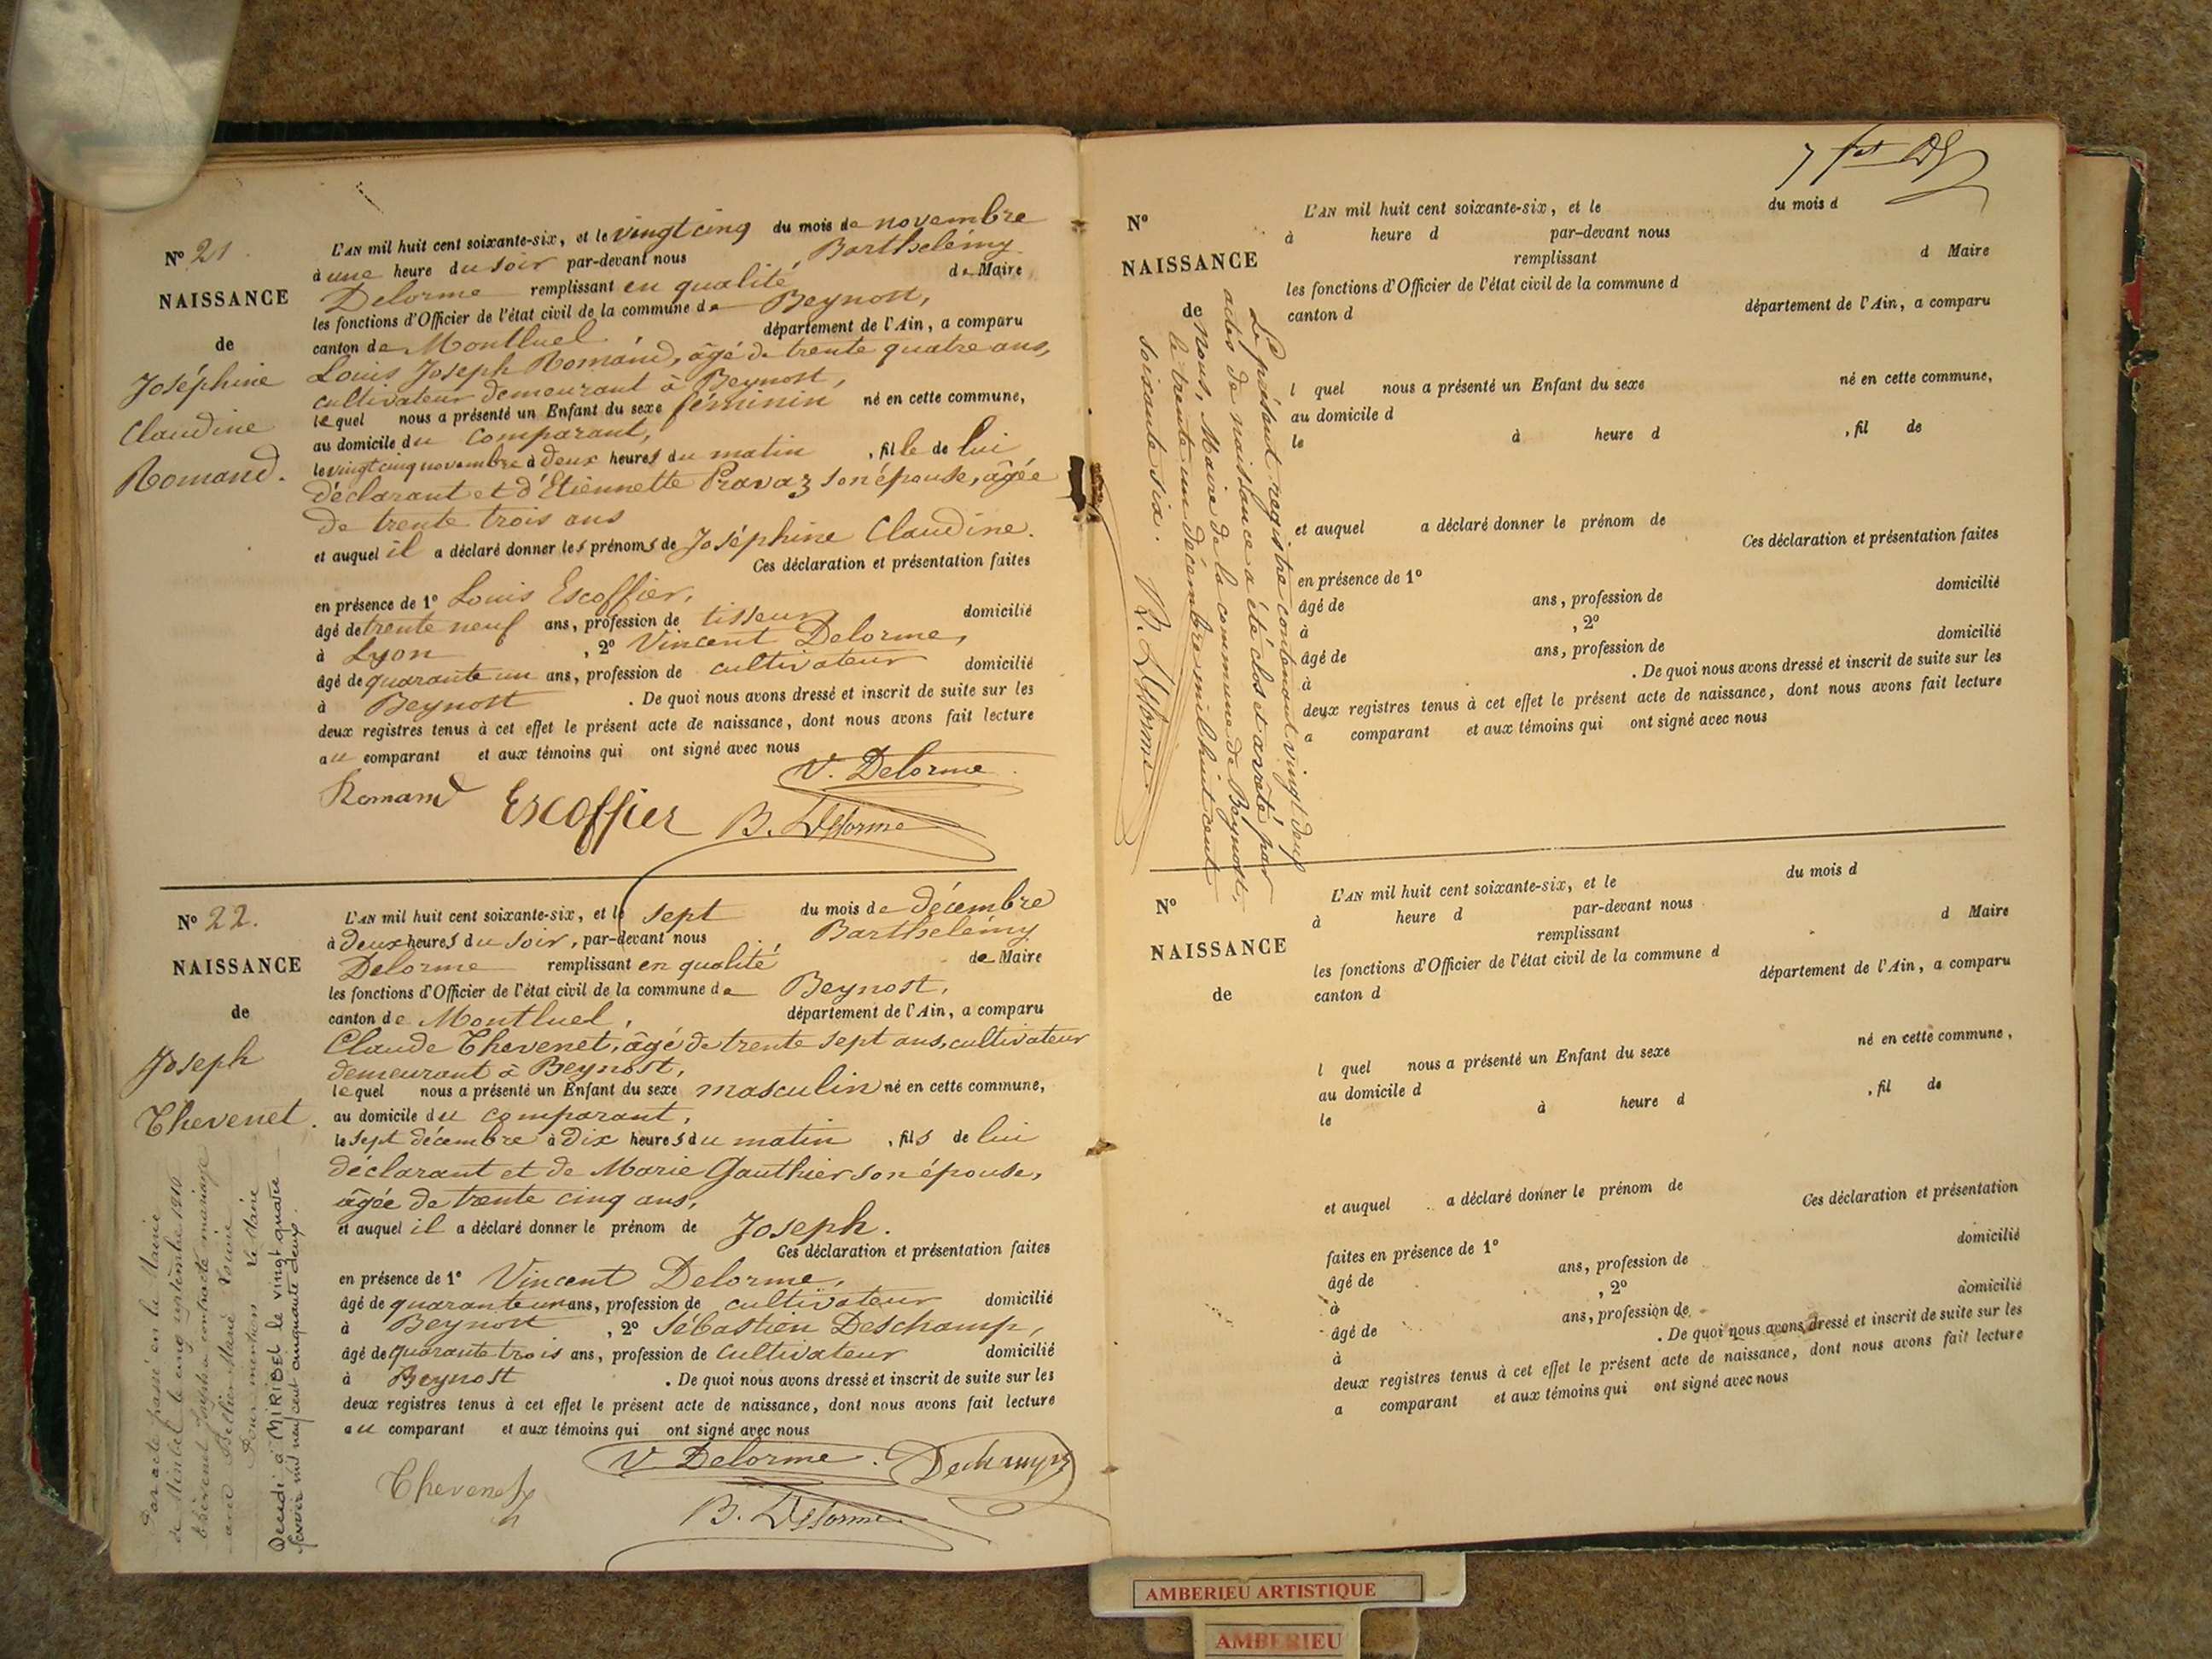 N° 21.
NAISSANCE
de
Joséphine
Claudine
Romand.
L'AN mil huit cent soixante-six, et le vingt cinq du mois de novembre
à une heure du soir par-devant nous Barthelémy
Delorme remplissant en qualité de Maire
les fonctions d'Officier de l'état civil de la commune de Beynost,
canton de Montluel département de l'Ain, a comparu
Louis Joseph Romand, âgé de trente quatre ans,
cultivateur demeurant à Beynost,
lequel nous a présenté un Enfant du sexe féminin né en cette commune,
au domicile du comparant,
le vingt cinq novembre à deux heures du matin , fille de lui
déclarant et d'Etiennette Pravaz son épouse, âgée
de trente trois ans
et auquel il a déclaré donner les prénoms de Joséphine Claudine.
Ces déclaration et présentation faites
en présence de 1° Louis Escoffier,
âgé de trente neuf ans, profession de tisseur domicilié
à Lyon , 2° Vincent Delorme,
âgé de quarante un ans, profession de cultivateur domicilié
à Beynost . De quoi nous avons dressé et inscrit de suite sur les
deux registres tenus à cet effet le présent acte de naissance, dont nous avons fait lecture
au comparant et aux témoins qui ont signé avec nous
V. Delorme
Romand Escoffier B. Delorme
N° 22.
NAISSANCE
de
Joseph
Thevenet.
L'AN mil huit cent soixante-six, et le sept du mois de décembre
à deux heures du soir, par-devant nous Barthelémy
Delorme remplissant en qualité de Maire
les fonctions d'Officier de l'état civil de la commune de Beynost,
canton de Montluel, département de l'Ain, a comparu
Claude Thevenet, âgé de trente sept ans, cultivateur
demeurant à Beynost,
lequel nous a présenté un Enfant du sexe masculin né en cette commune,
au domicile du comparant,
le sept décembre à dix heures du matin , fils de lui
déclarant et de Marie Gauthier son épouse,
âgée de trente cinq ans,
et auquel il a déclaré donner le prénom de Joseph.
Ces déclaration et présentation faites
en présence de 1° Vincent Delorme,
âgé de quarante un ans, profession de cultivateur domicilié
à Beynost , 2° Sébastien Deschamp,
âgé de quarante trois ans, profession de cultivateur domicilié
à Beynost . De quoi nous avons dressé et inscrit de suite sur les
deux registres tenus à cet effet le présent acte de naissance, dont nous avons fait lecture
au comparant et aux témoins qui ont signé avec nous
V. Delorme. Dechamp
Thevenet
B. Delorme
Par acte passé en la Mairie
de Miribel le cinq septembre
thevenet Joseph a contracté mariage
avec Bellier Marie
Pour mention Le Maire
Décédé à MIRIBEL le vingt quatre
février mil neuf cent cinquante deux.
N°
NAISSANCE
de
L'AN mil huit cent soixante-six, et le du mois d
à heure d par-devant nous
remplissant d Maire
les fonctions d'Officier de l'état civil de la commune d
canton d département de l'Ain, a comparu
l quel nous a présenté un Enfant du sexe né en cette commune,
au domicile d
le à heure d , fil de
et auquel a déclaré donner le prénom de
Ces déclaration et présentation faites
en présence de 1°
âgé de ans, profession de domicilié
à , 2°
âgé de ans, profession de domicilié
à . De quoi nous avons dressé et inscrit de suite sur les
deux registres tenus à cet effet le présent acte de naissance, dont nous avons fait lecture
a comparant et aux témoins qui ont signé avec nous
Le présent registre contenant vingt deux
actes de naissance a été clos et arrêté par
Nous, Maire de la commune de Beynost,
le trente un décembre mil huit cent
soixante six. B. Delorme
N°
NAISSANCE
de
L'AN mil huit cent soixante-six, et le du mois d
à heure d par-devant nous
remplissant d Maire
les fonctions d'Officier de l'état civil de la commune d
canton d département de l'Ain, a comparu
l quel nous a présenté un Enfant du sexe né en cette commune,
au domicile d
le à heure d , fil de
et auquel a déclaré donner le prénom de
Ces déclaration et présentation
faites en présence de 1°
âgé de ans, profession de domicilié
à , 2°
âgé de ans, profession de domicilié
à . De quoi nous avons dressé et inscrit de suite sur les
deux registres tenus à cet effet le présent acte de naissance, dont nous avons fait lecture
a comparant et aux témoins qui ont signé avec nous
AMBERIEU ARTISTIQUE
AMBERIEU